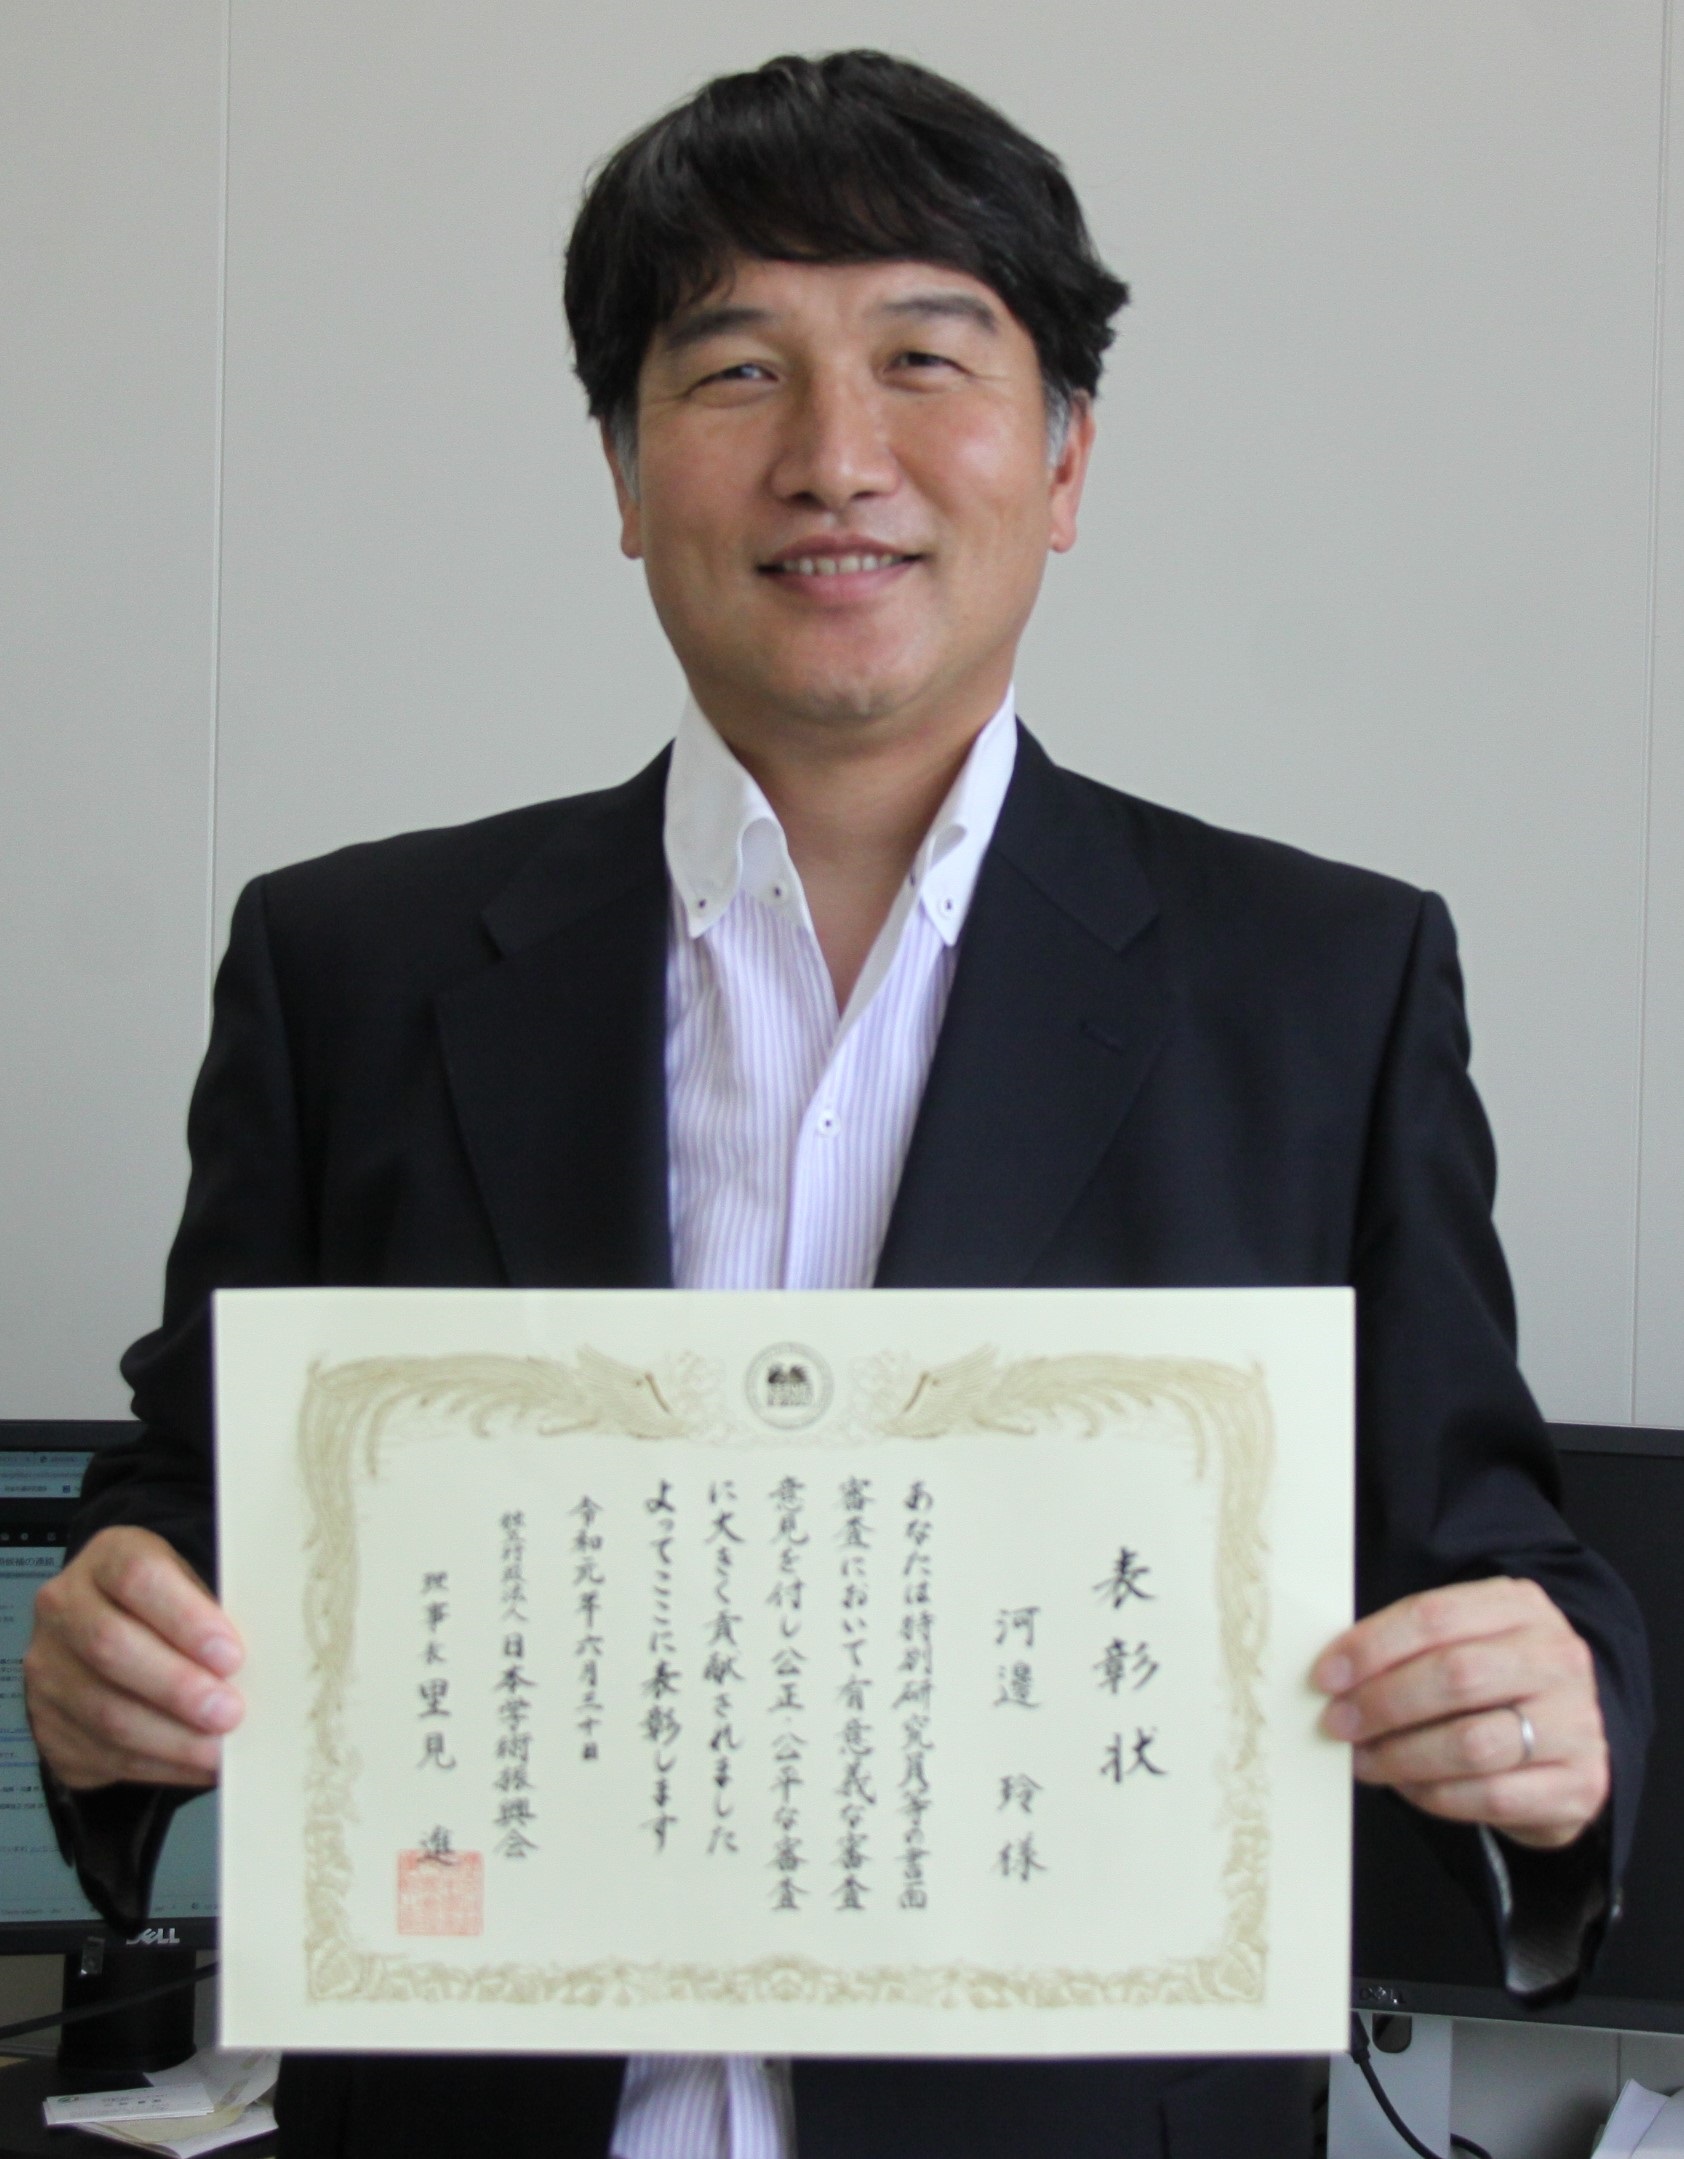 表彰状
河邉 玲 様
あなたは特別研究員等の書面
審査において有意義な審査
意見を付し公正・公平な審査
に大きく貢献されました
よってここに表彰します
令和元年六月三十日
独立行政法人日本学術振興会
理事長 里見 進
DELL
DELL